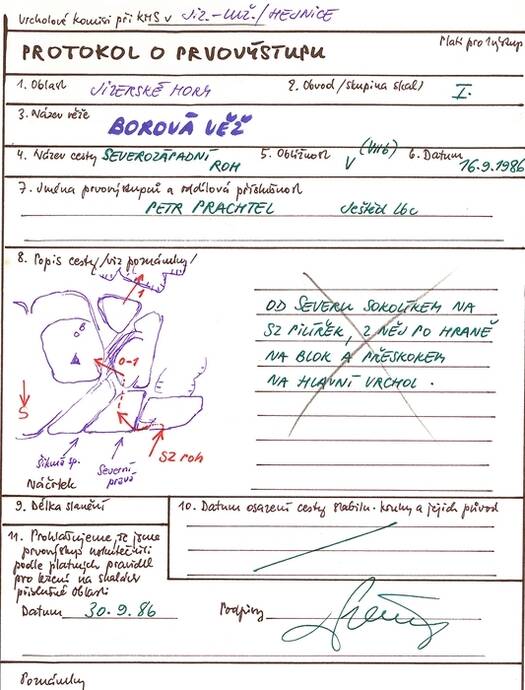 Vrcholová komise při KHS v Jiz.-Luž./HEJNICE
PROTOKOL O PRVOVÝSTUPU
Platí pro 1 výstup
1. Oblast JIZERSKÉ HORY
2. Obvod/skupina skal/ I.
3. Název věže
BOROVÁ VĚŽ
4. Název cesty SEVEROZÁPADNÍ ROH
5. Obtížnost V (VIIb)
6. Datum 16.9.1986
7. Jména prvovýstupců a oddílová příslušnost
PETR PRACHTEL Ještěd Lbc
8. Popis cesty/viz poznámky/
1
6
0-1
S
SZ roh
Šikmá sp.
Severní pravá
Náčrtek
OD SEVERU SOKOLÍKEM NA
SZ PILÍŘEK, Z NĚJ PO HRANĚ
NA BLOK A PŘESKOKEM
NA HLAVNÍ VRCHOL.
9. Délka slanění
10. Datum osazení cesty stabiln. kruhy a jejich původ
11. Prohlašujeme, že jsme
prvovýstup uskutečnili
podle platných pravidel
pro lezení na skalách
příslušné oblasti
Datum 30.9.86
Podpisy
Poznámky